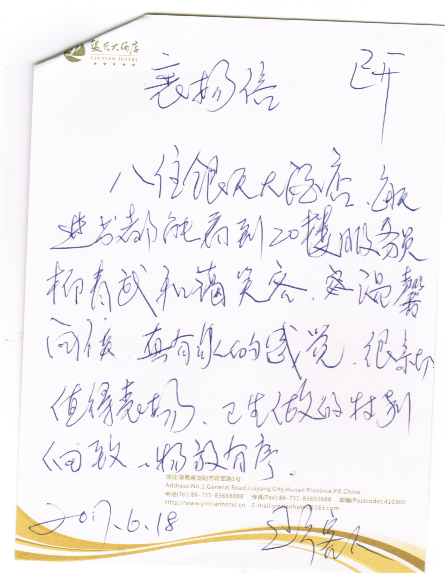 银天大酒店
YINTIAN HOTEL
表扬信
已开
入住银天大酒店,每天
进出都能看到20楼服务员
柳青武和蔼笑容,
问候,真有家人的感觉,很亲切
值得表扬,卫生做的特别
细致,物放有序。
地址:湖南省浏阳市将军路1号
Address:No.1,General Road,Liuyang City,Hunan Province,P.R.China
电话(Tel):86-731-83688888 传真(Fax):86-731-83602688 邮编(Postcode):410300
Http://www.yintianhotel.cn E-mail:yintianhotel@163.com
2017.6.18